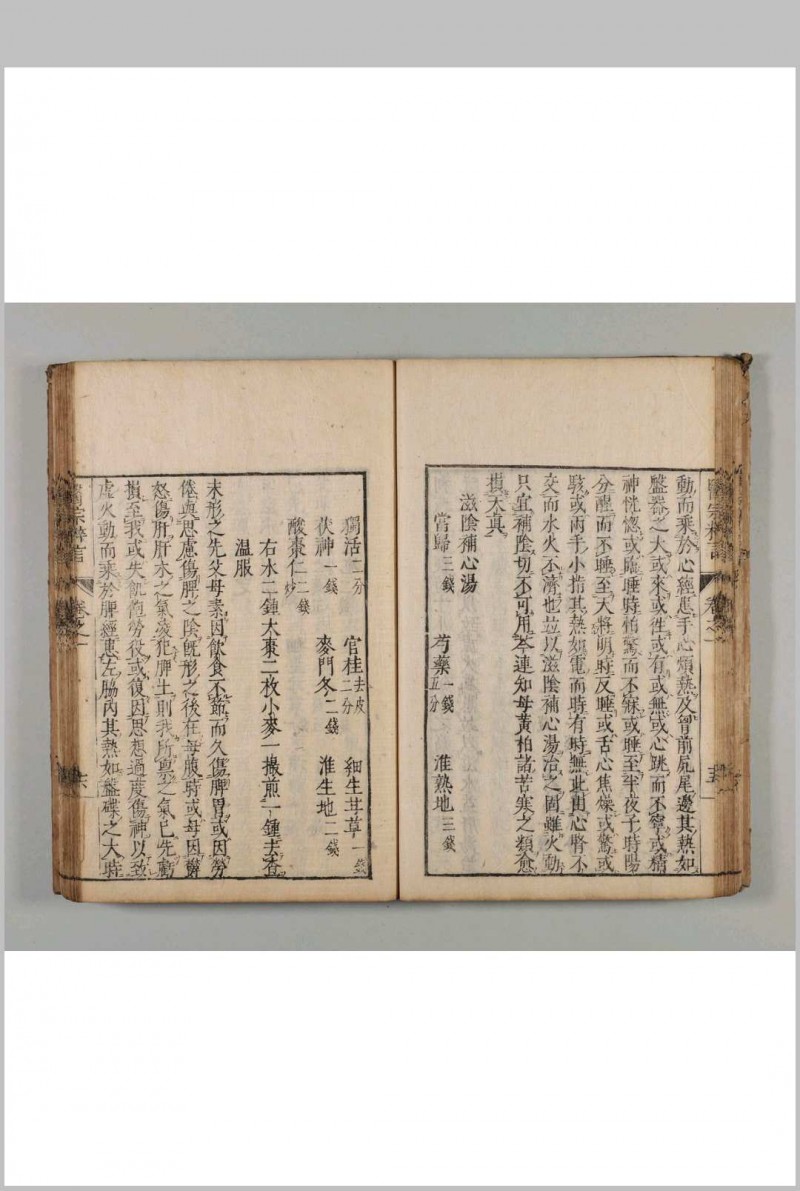 動而乘於心經患手心煩熱及胷前尻尾邊其熱如
盤器之大或來或徃或有或無或心跳而不寧或精
神恍惚或臨睡時怕驚而不寐或睡至半夜子時陽
分醒而不睡至天將明時反睡或舌心焦燥或驚或
駭或兩手小指其熱如電而時有時無此由心腎不
交而水火不濟也並以滋陰補心湯治之固雖火動
只宜補陰切不可用芩連知母黃柏諸苦寒之類愈
損天真
滋陰補心湯
當歸三錢 芍藥一錢五分 淮熟地三錢
醫宗粹言 卷之 五
獨活二分 官桂去皮二分 細生甘草一錢
茯神一錢 麥門冬二錢 淮生地二錢
酸棗仁炒二錢
右水二鍾大棗二枚小麥一撮煎一鍾去查
温服
未形之先父母素因飲食不節而久傷脾胃或因勞
倦與思慮傷脾之陰旣形之後在母腹時或母因鬱
怒傷肝肝木之氣凌犯脾土則我所禀之氣已先虧
損至我或失飢飽勞役或復因思想過度傷神以致
虛火動而乘於脾經患左脇內其熱如盤碟之大時
醫宗粹言 卷之 六